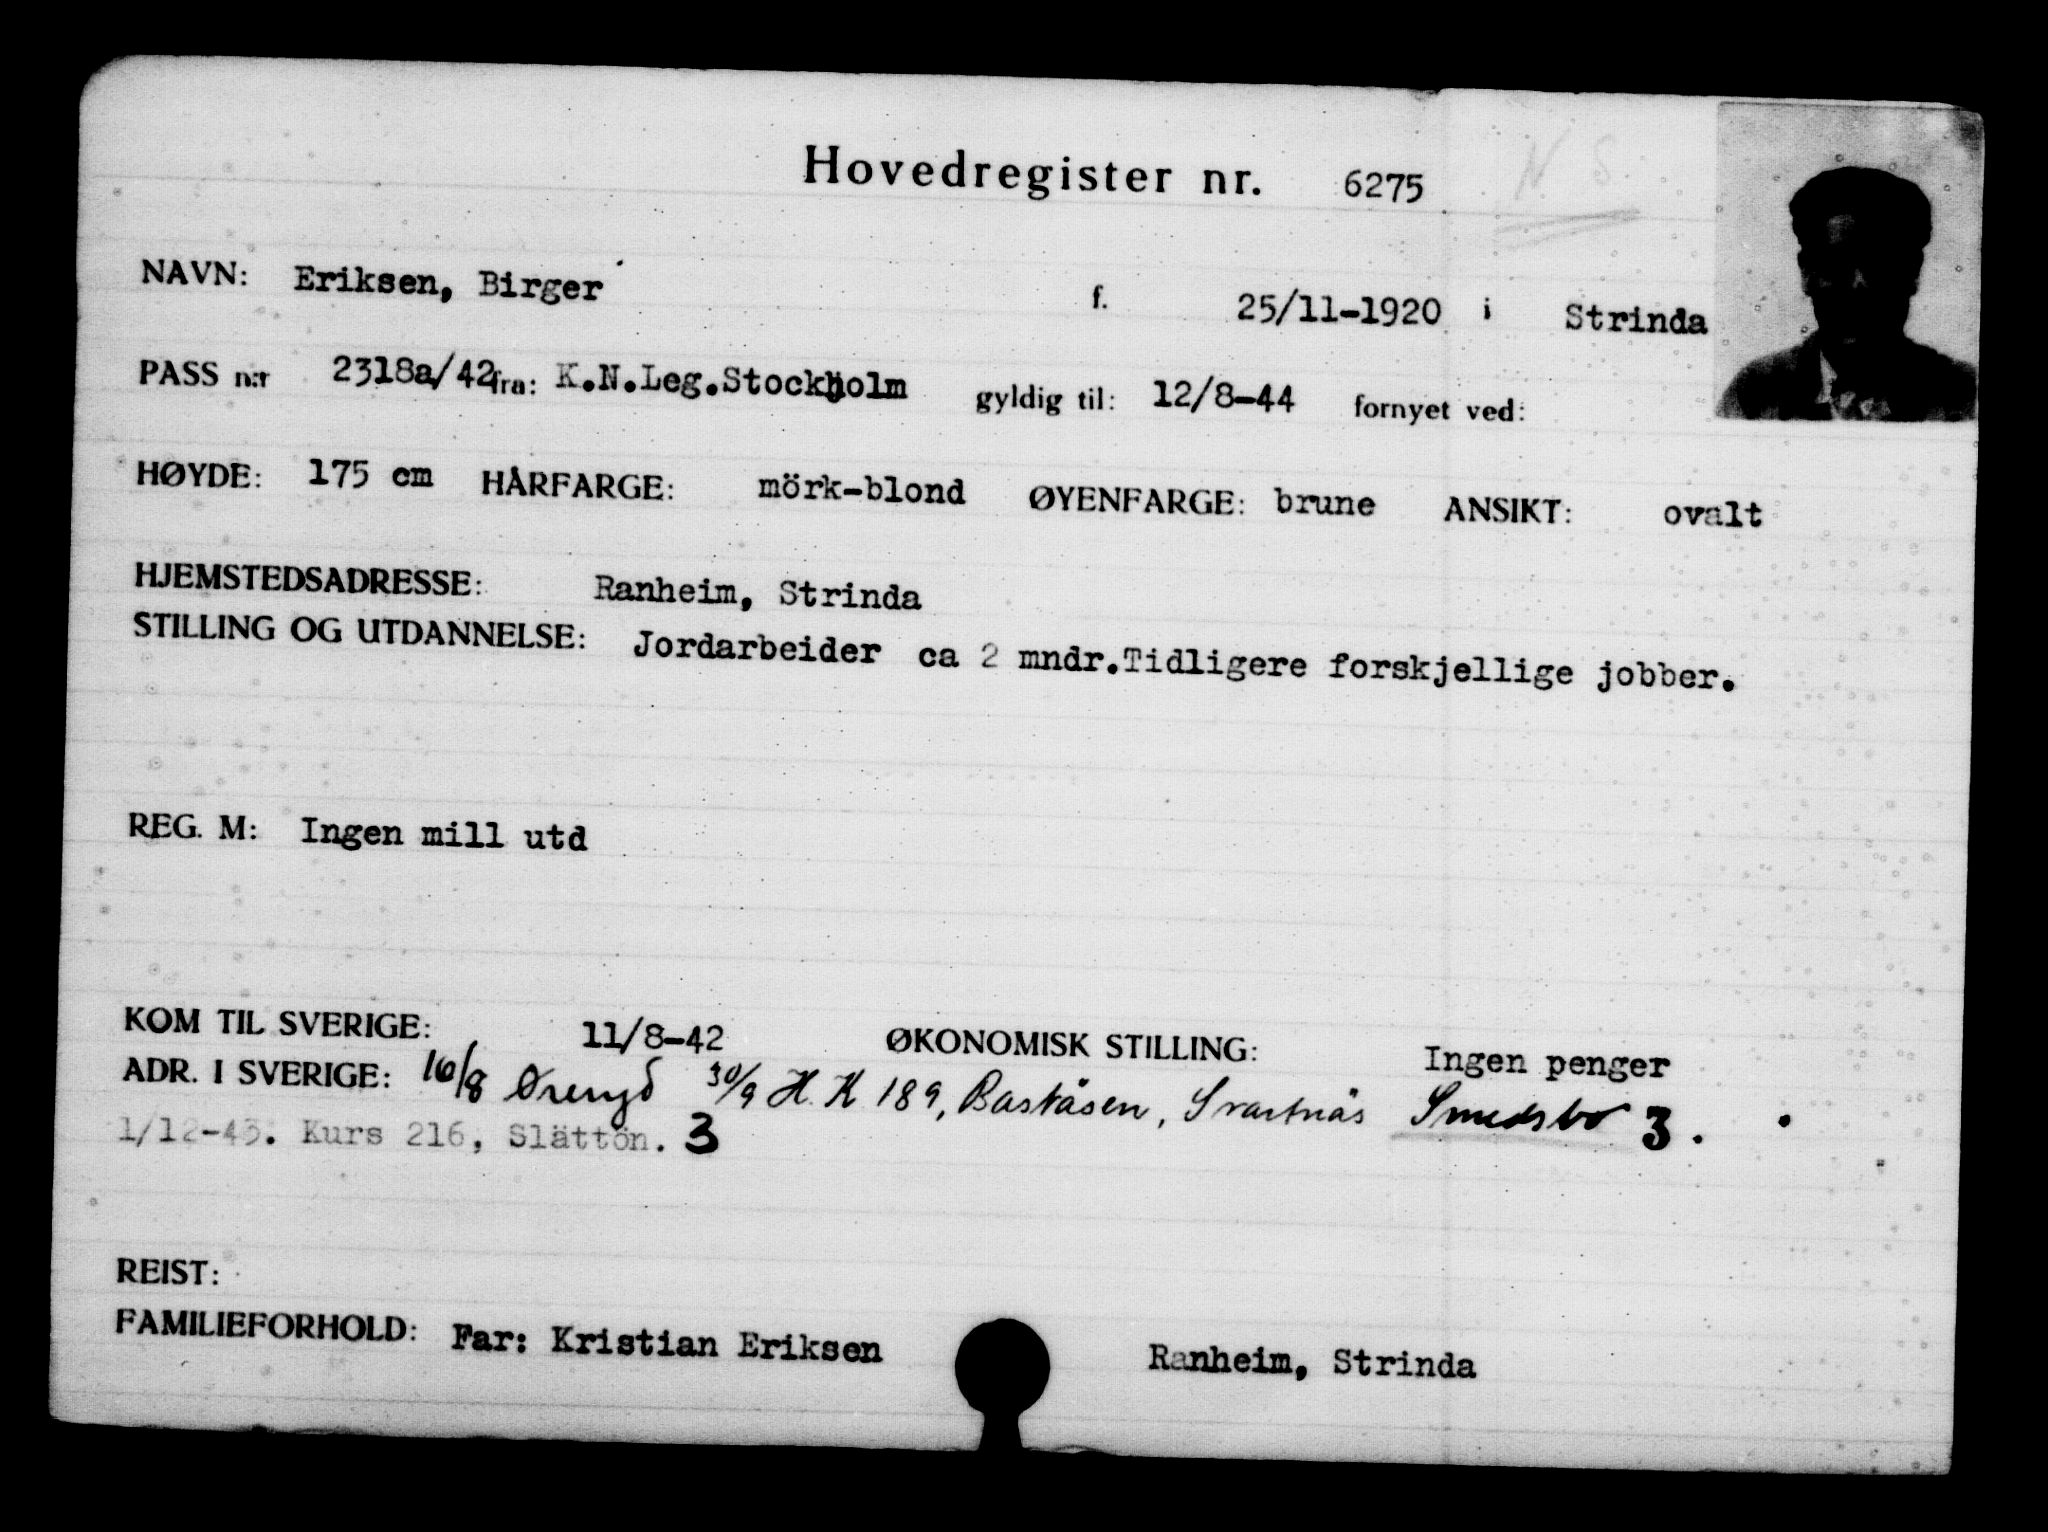 Hovedregister nr. 6275 N.S.
NAVN: Eriksen, Birger f. 25/11-1920 i Strinda
PASS n:r 2318a/42 fra: K.N.Leg.Stockholm gyldig til: 12/8-44 fornyet ved:
HØYDE: 175 cm HÅRFARGE: mörk-blond ØYENFARGE: brune ANSIKT: ovalt
HJEMSTEDSADRESSE: Ranheim, Strinda
STILLING OG UTDANNELSE: Jordarbeider ca 2 mndr.Tidligere forskjellige jobber.
REG. M: Ingen mill utd
KOM TIL SVERIGE: 11/8-42 ØKONOMISK STILLING: Ingen penger
ADR. I SVERIGE: 16/8 Öreryd 30/9 H.K 189, Baståsen, Svartnäs Smedsbo 3.
1/12-43. Kurs 216, Slättön. 3
REIST:
FAMILIEFORHOLD: Far: Kristian Eriksen Ranheim, Strinda